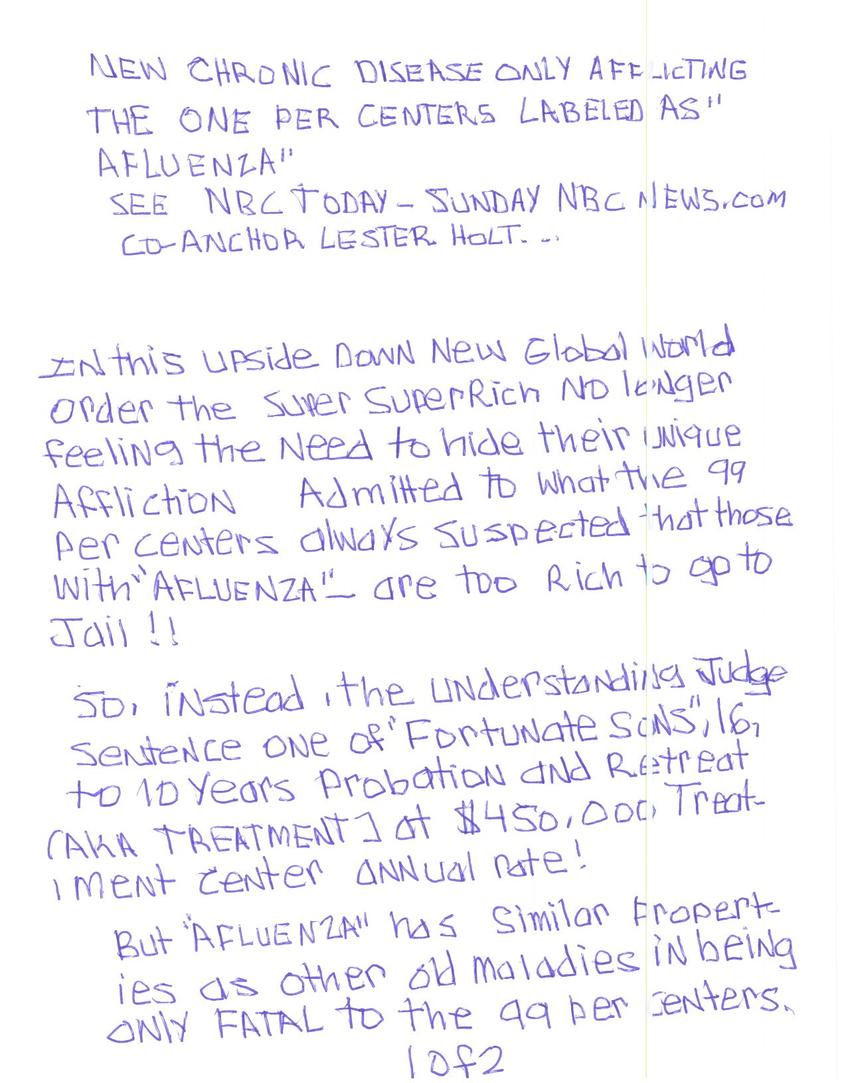 NEW CHRONIC DISEASE ONLY AFFLICTING
THE ONE PER CENTERS LABELED AS "
AFLUENZA"
SEE NBC TODAY - SUNDAY NBC NEWS.COM
CO-ANCHOR LESTER HOLT...
IN this UPSide DOWN New Global World
Order the Super SuperRich No longer
feeling the Need to hide their unique
Affliction Admitted to what the 99
per centers always suspected that those
with "AFLUENZA" - are too Rich to go to
Jail !!
SO, instead, the UNderstanding Judge
Sentence ONE of "Fortunate SONS", 16,
to 10 Years Probation and Retreat
(AKA TREATMENT] at $450,000, Treat-
ment Center ANNual rate!
But "AFLUENZA" has Similar Propert-
ies as other old maladies in being
ONLY FATAL to the 99 per centers.
1 of 2